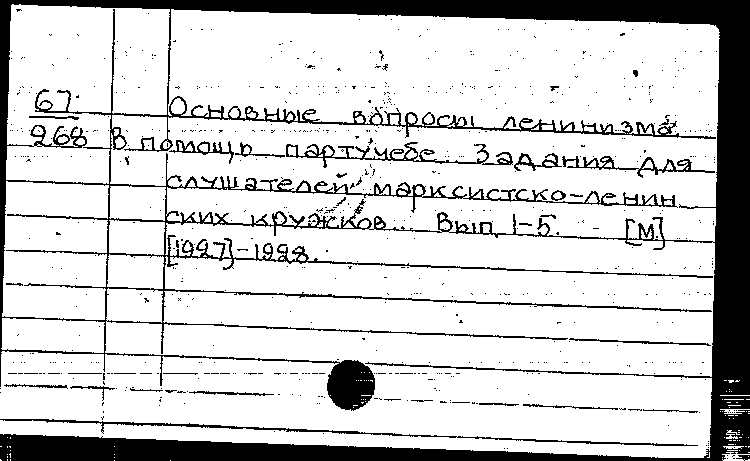 67 Основные вопросы ленинизма.
268 В помощь партучебе. Задания для
слушателей марксистско-ленин
ских кружков... Вып. 1-5. - [М.]
[1927]-1928.